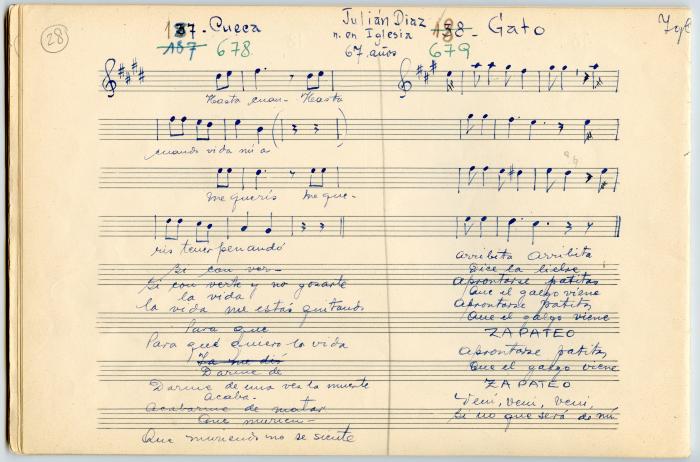 28
137. Cueca
157 678
Julián Diaz
n. en Iglesia
67 años
138 - Gato
679
Hasta cuan- Hasta
cuando vida mia
me querís me que-
ris tener penando
Si con ver-
Si con verte y no gozarte
la vida
la vida me estás quitando
Para que
Para qué quiero la vida
Ya me dió
Darme de
Darme de una vez la muerte
Acaba-
Acabarme de matar
Que murien-
Que muriendo no se siente
Arribita Arribita
Dice la liebre
Aprontarse patitas
Que el galgo viene
Aprontarse patitas
Que el galgo viene
ZAPATEO
Aprontarse patitas
Que el galgo viene
ZAPATEO
Vení, vení, vení,
Si no que será de mí